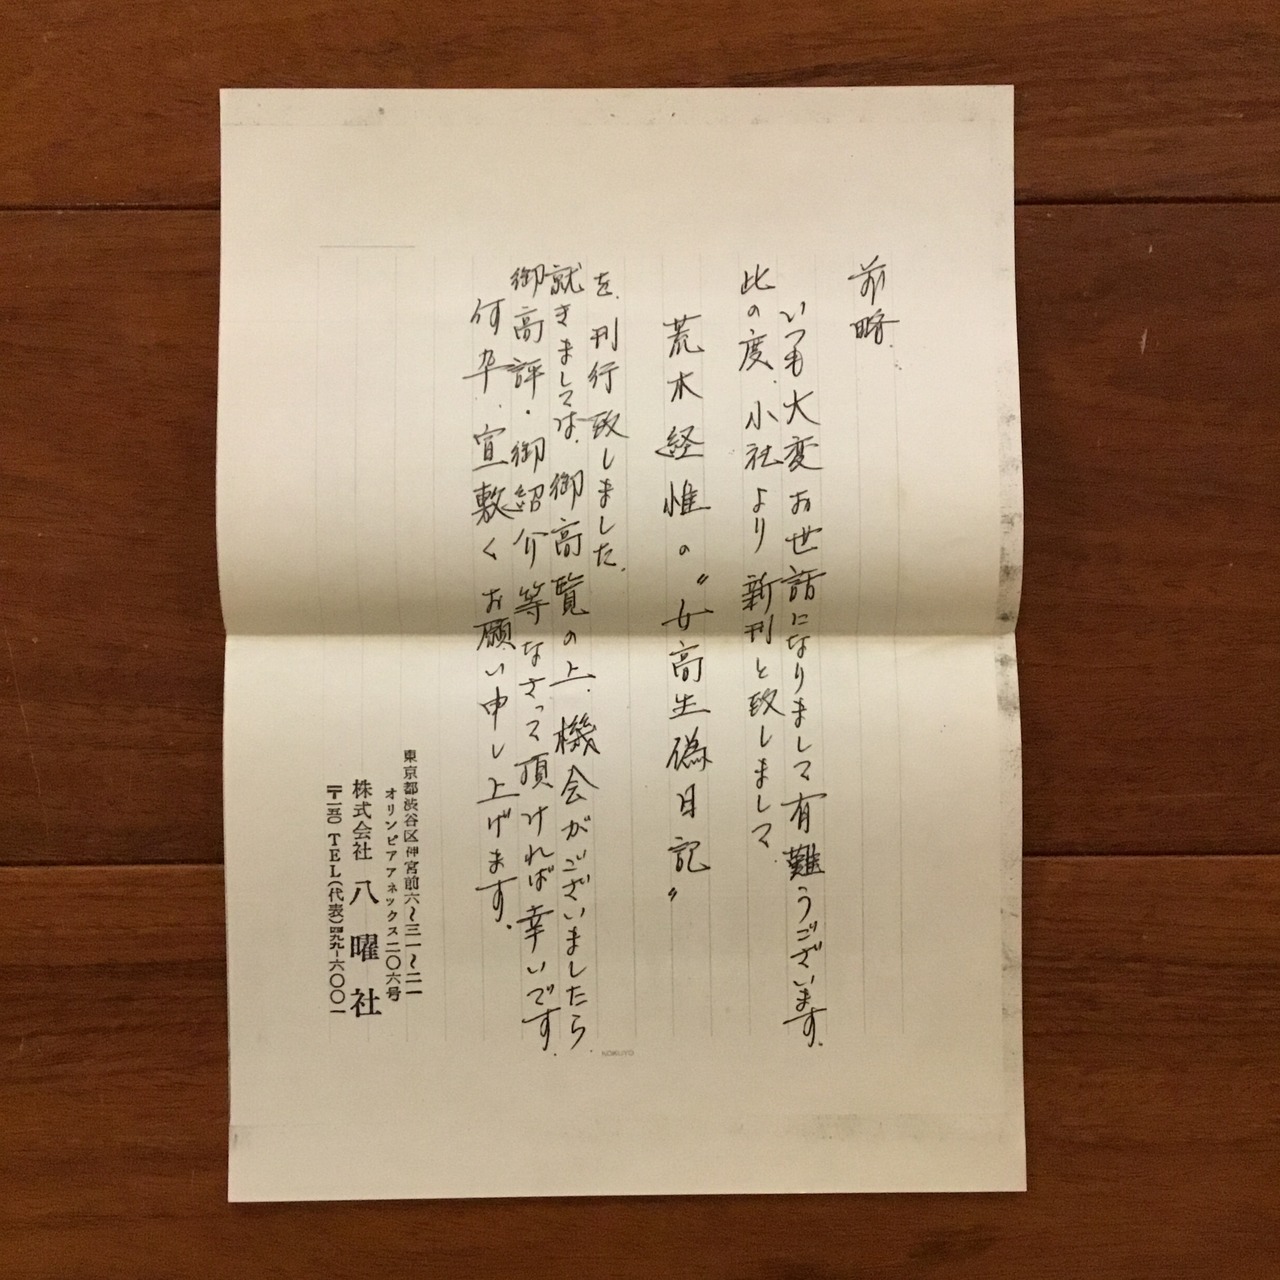 前略
いつも大変お世話になりまして有難うございます。
此の度、小社より新刊と致しまして
荒木経惟の〝女高生偽日記〟
を、刊行致しました。
就きましては、御高覧の上、機会がございましたら
御高評・御紹介等なさって頂ければ幸いです。
何卒、宜敷くお願い申し上げます。
東京都渋谷区神宮前六〜三一〜二一
オリンピアアネックス二〇六号
株式会社 八曜社
〒一五〇 TEL(代表)四九九-六〇〇一
KOKUYO